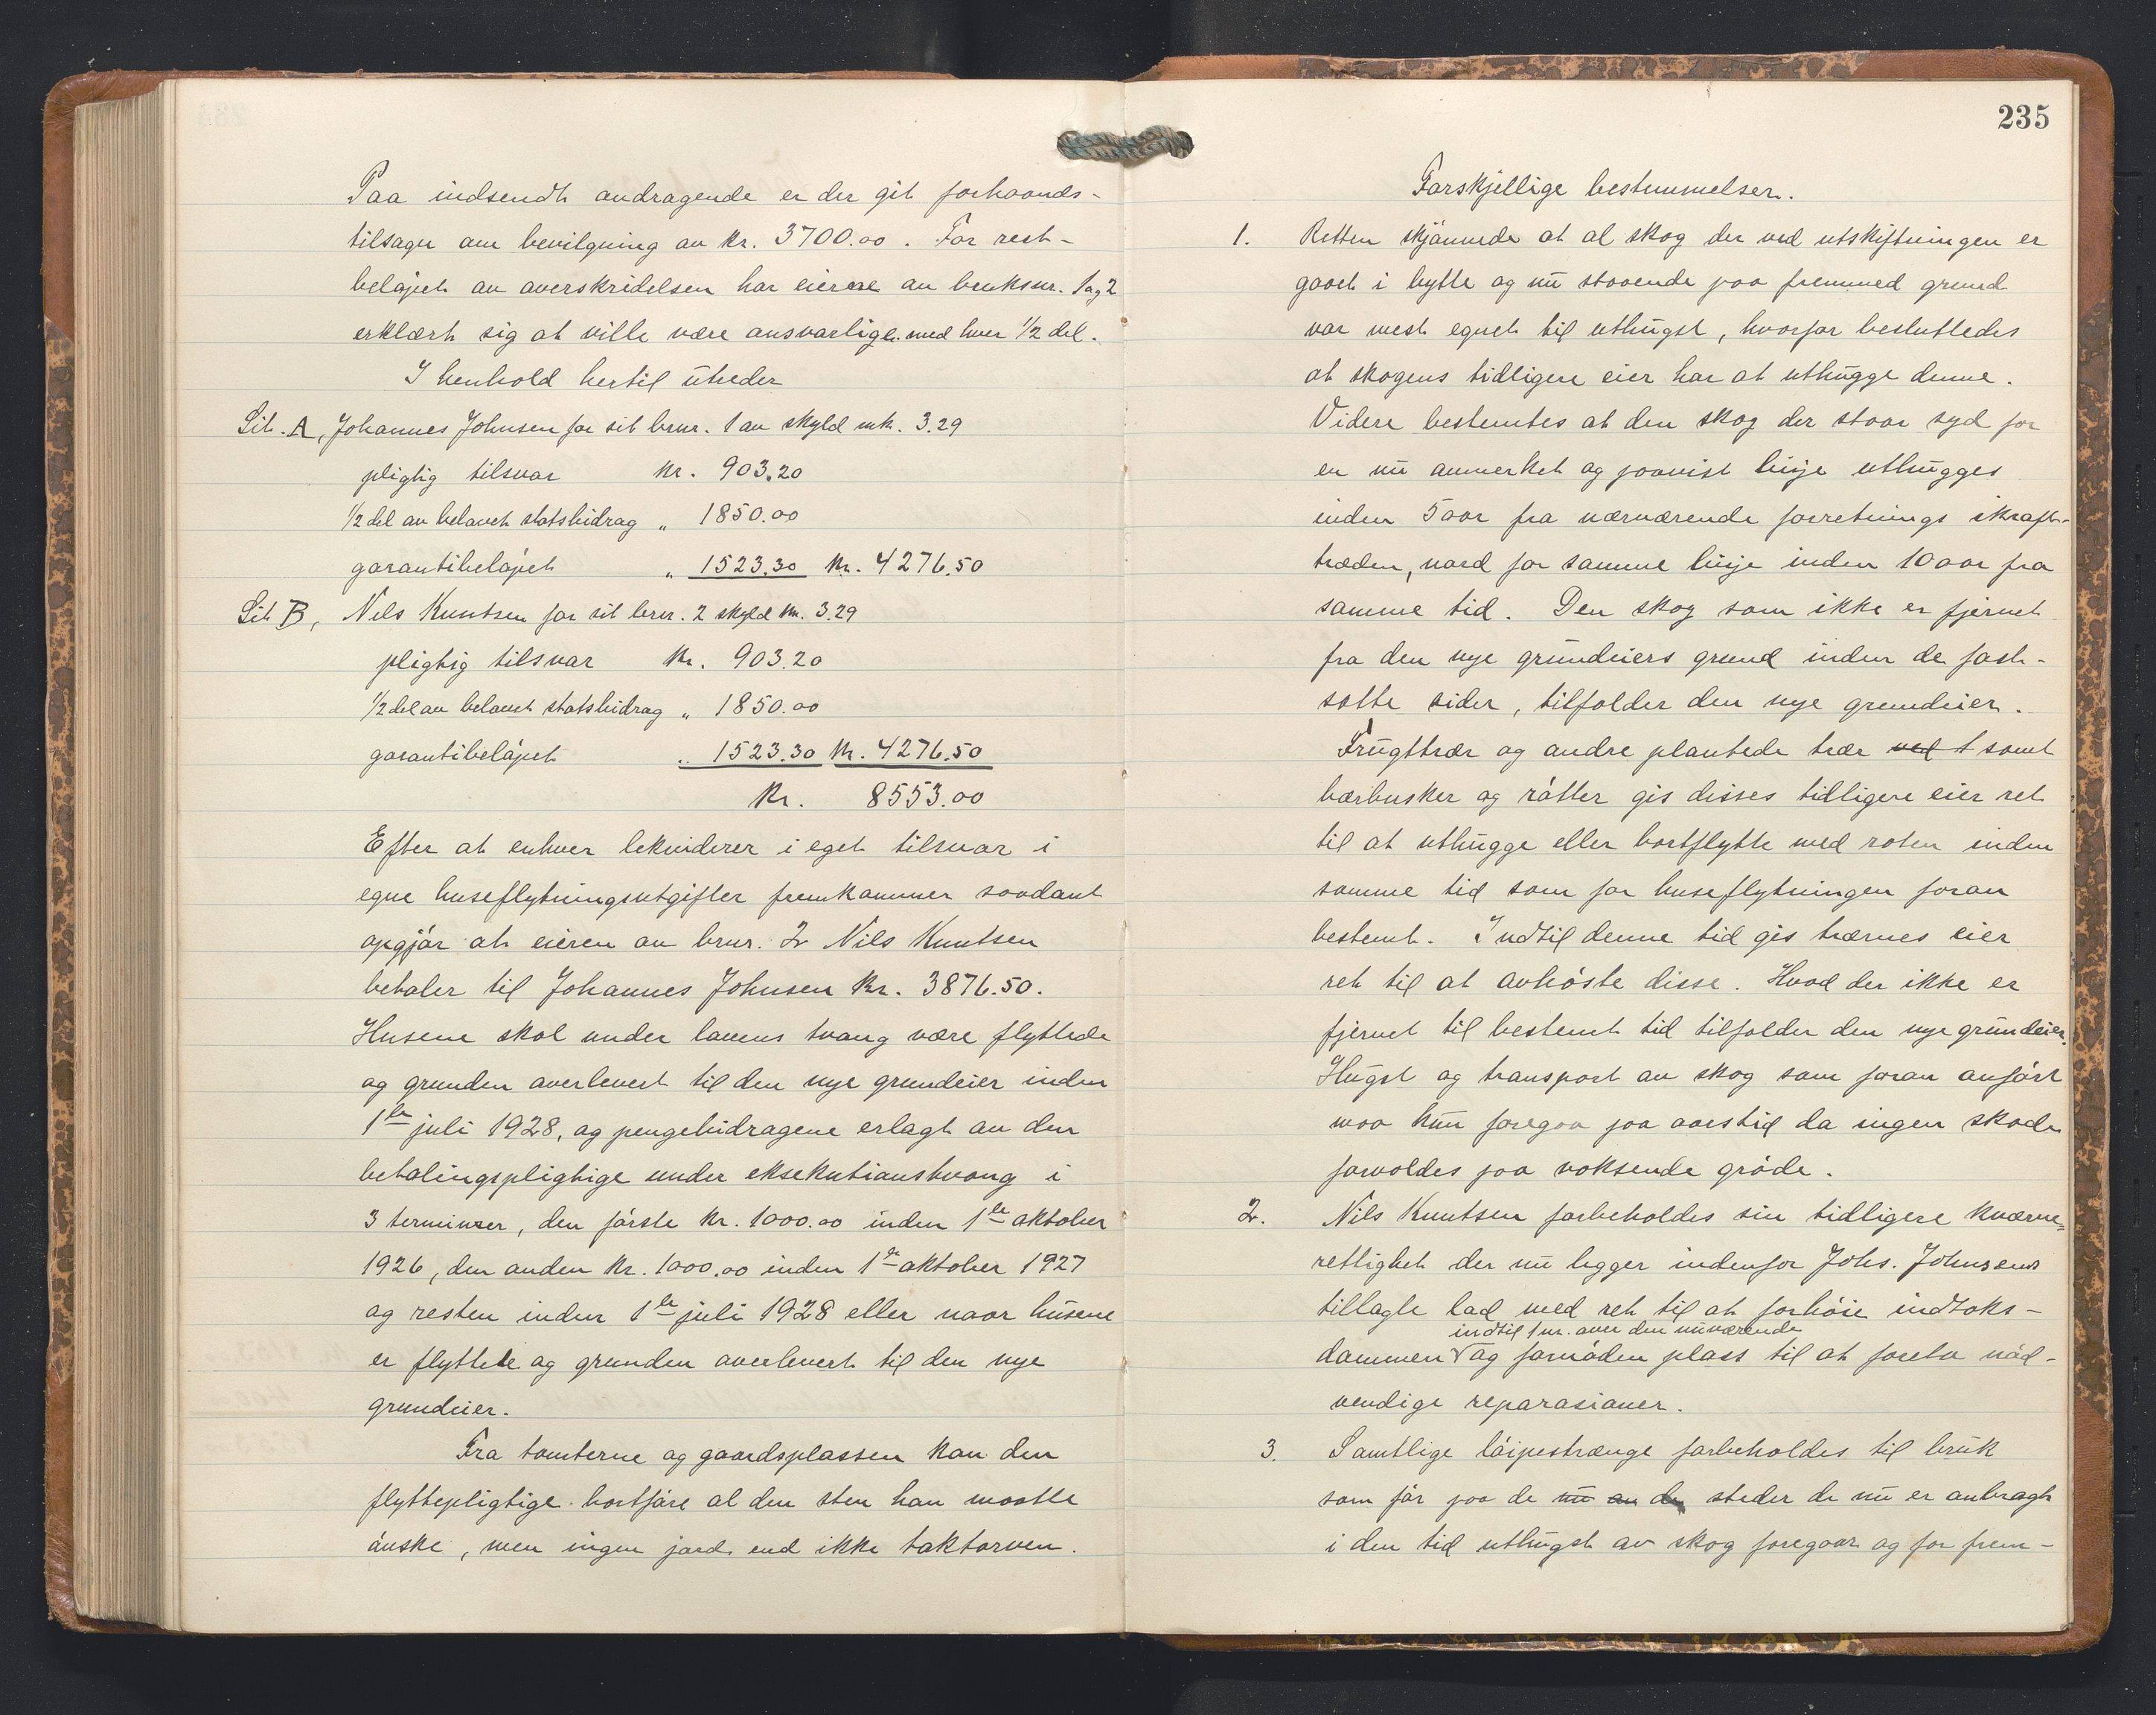 Paa indsendt andragende er der git forhaands-
tilsagn om bevilgning av kr. 3700.00. For rest-
beløpet av overskridelsen har eierne av bruksnr. 1 og 2
erklært sig at ville være ansvarlige med hver 1/2 del.
I henhold hertil utreder
Lit. A, Johannes Johnsen for sit brnr. 1 av skyld mk. 3.29
pligtig tilsvar kr. 903.20
1/2 del av belovet statsbidrag „ 1850.00
garantibeløpet „ 1523.30 kr. 4276.50
Lit B, Nils Knutsen for sit brnr. 2 skyld m. 3.29
pligtig tilsvar kr. 903.20
1/2 del av belovet statsbidrag „ 1850.00
garantibeløpet „ 1523.30 kr. 4276.50
Kr. 8553.00
Efter at enhver lekviderer i eget tilsvar i
egne huseflytningsutgifter fremkommer saadant
opgjør at eieren av brnr. 2 Nils Knutsen
betaler til Johannes Johnsen kr. 3876.50.
Husene skal under lovens tvang være flyttede
og grunden overlevert til den nye grundeier inden
1ste juli 1928, og pengebidragene erlagt av den
betalingspligtige under eksekutionstvang i
3 terminer, den første kr. 1000.00 inden 1ste oktober
1926, den anden kr. 1000.00 inden 1ste oktober 1927
og resten inden 1ste juli 1928 eller naar husene
er flyttete og grunden overlevert til den nye
grundeier.
Fra tomterne og gaardsplassen kan den
flyttepligtige bortføre al den sten han maatte
ønske, men ingen jord end ikke taktorven.
235
Forskjellige bestemmelser.
1. Retten skjønnede at al skog der ved utskiftningen er
gaaet i bytte og nu staaende paa fremmed grund
var mest egnet til uthugst, hvorfor besluttedes
at skogens tidligere eier har at uthugge denne.
Videre bestemtes at den skog der staar syd for
en nu anmerket og paavist linje uthugges
inden 5 aar fra nærværende forretnings ikraft-
træden, nord for samme linje inden 10 aar fra
samme tid. Den skog som ikke er fjernet
fra den nye grundeiers grund inden de fast-
satte tider, tilfalder den nye grundeier.
Frugttrær og andre plantede trær ved t samt
bærbusker og røtter gis disses tidligere eier ret
til at uthugge eller bortflytte med roten inden
samme tid som for huseflytningen foran
bestemt. Indtil denne tid gis trærnes eier
ret til at avhøste disse. Hvad der ikke er
fjernet til bestemt tid tilfalder den nye grundeier.
Hugst og transport av skog som foran anført
maa kun foregaa paa aarstid da ingen skade
forvoldes paa voksende grøde.
2. Nils Knutsen forbeholdes sin tidligere kværne-
rettighet der nu ligger indenfor Johs. Johnsens
tillagte lod med ret til at forhøie indtaks-
indtil 1 m. over den nuværende
dammen √ og fornøden plass til at foreta nød-
vendige reparasjoner.
3. Samtlige løipestrænge forbeholdes til bruk
som før paa de nu av de steder de nu er anbragt
i den tid uthugst av skog foregaar og for frem-